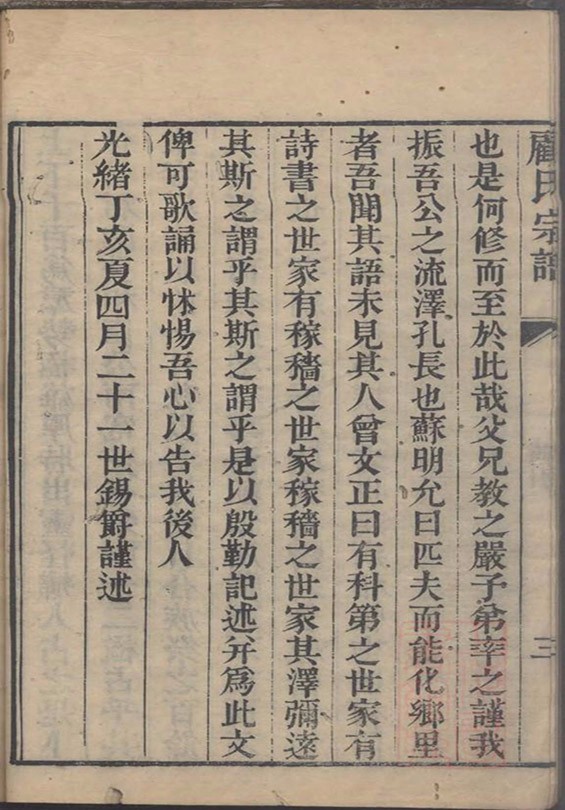 顧氏宗譜
三
也是何修而至於此哉父兄教之嚴子弟率之謹我
振吾公之流澤孔長也蘇明允曰匹夫而能化鄉里
者吾聞其語未見其人曾文正曰有科第之世家有
詩書之世家有稼穡之世家稼穡之世家其澤彌遠
其斯之謂乎其斯之謂乎是以殷勤記述幷爲此文
俾可歌誦以怵惕吾心以告我後人
光緒丁亥夏四月二十一世錫爵謹述